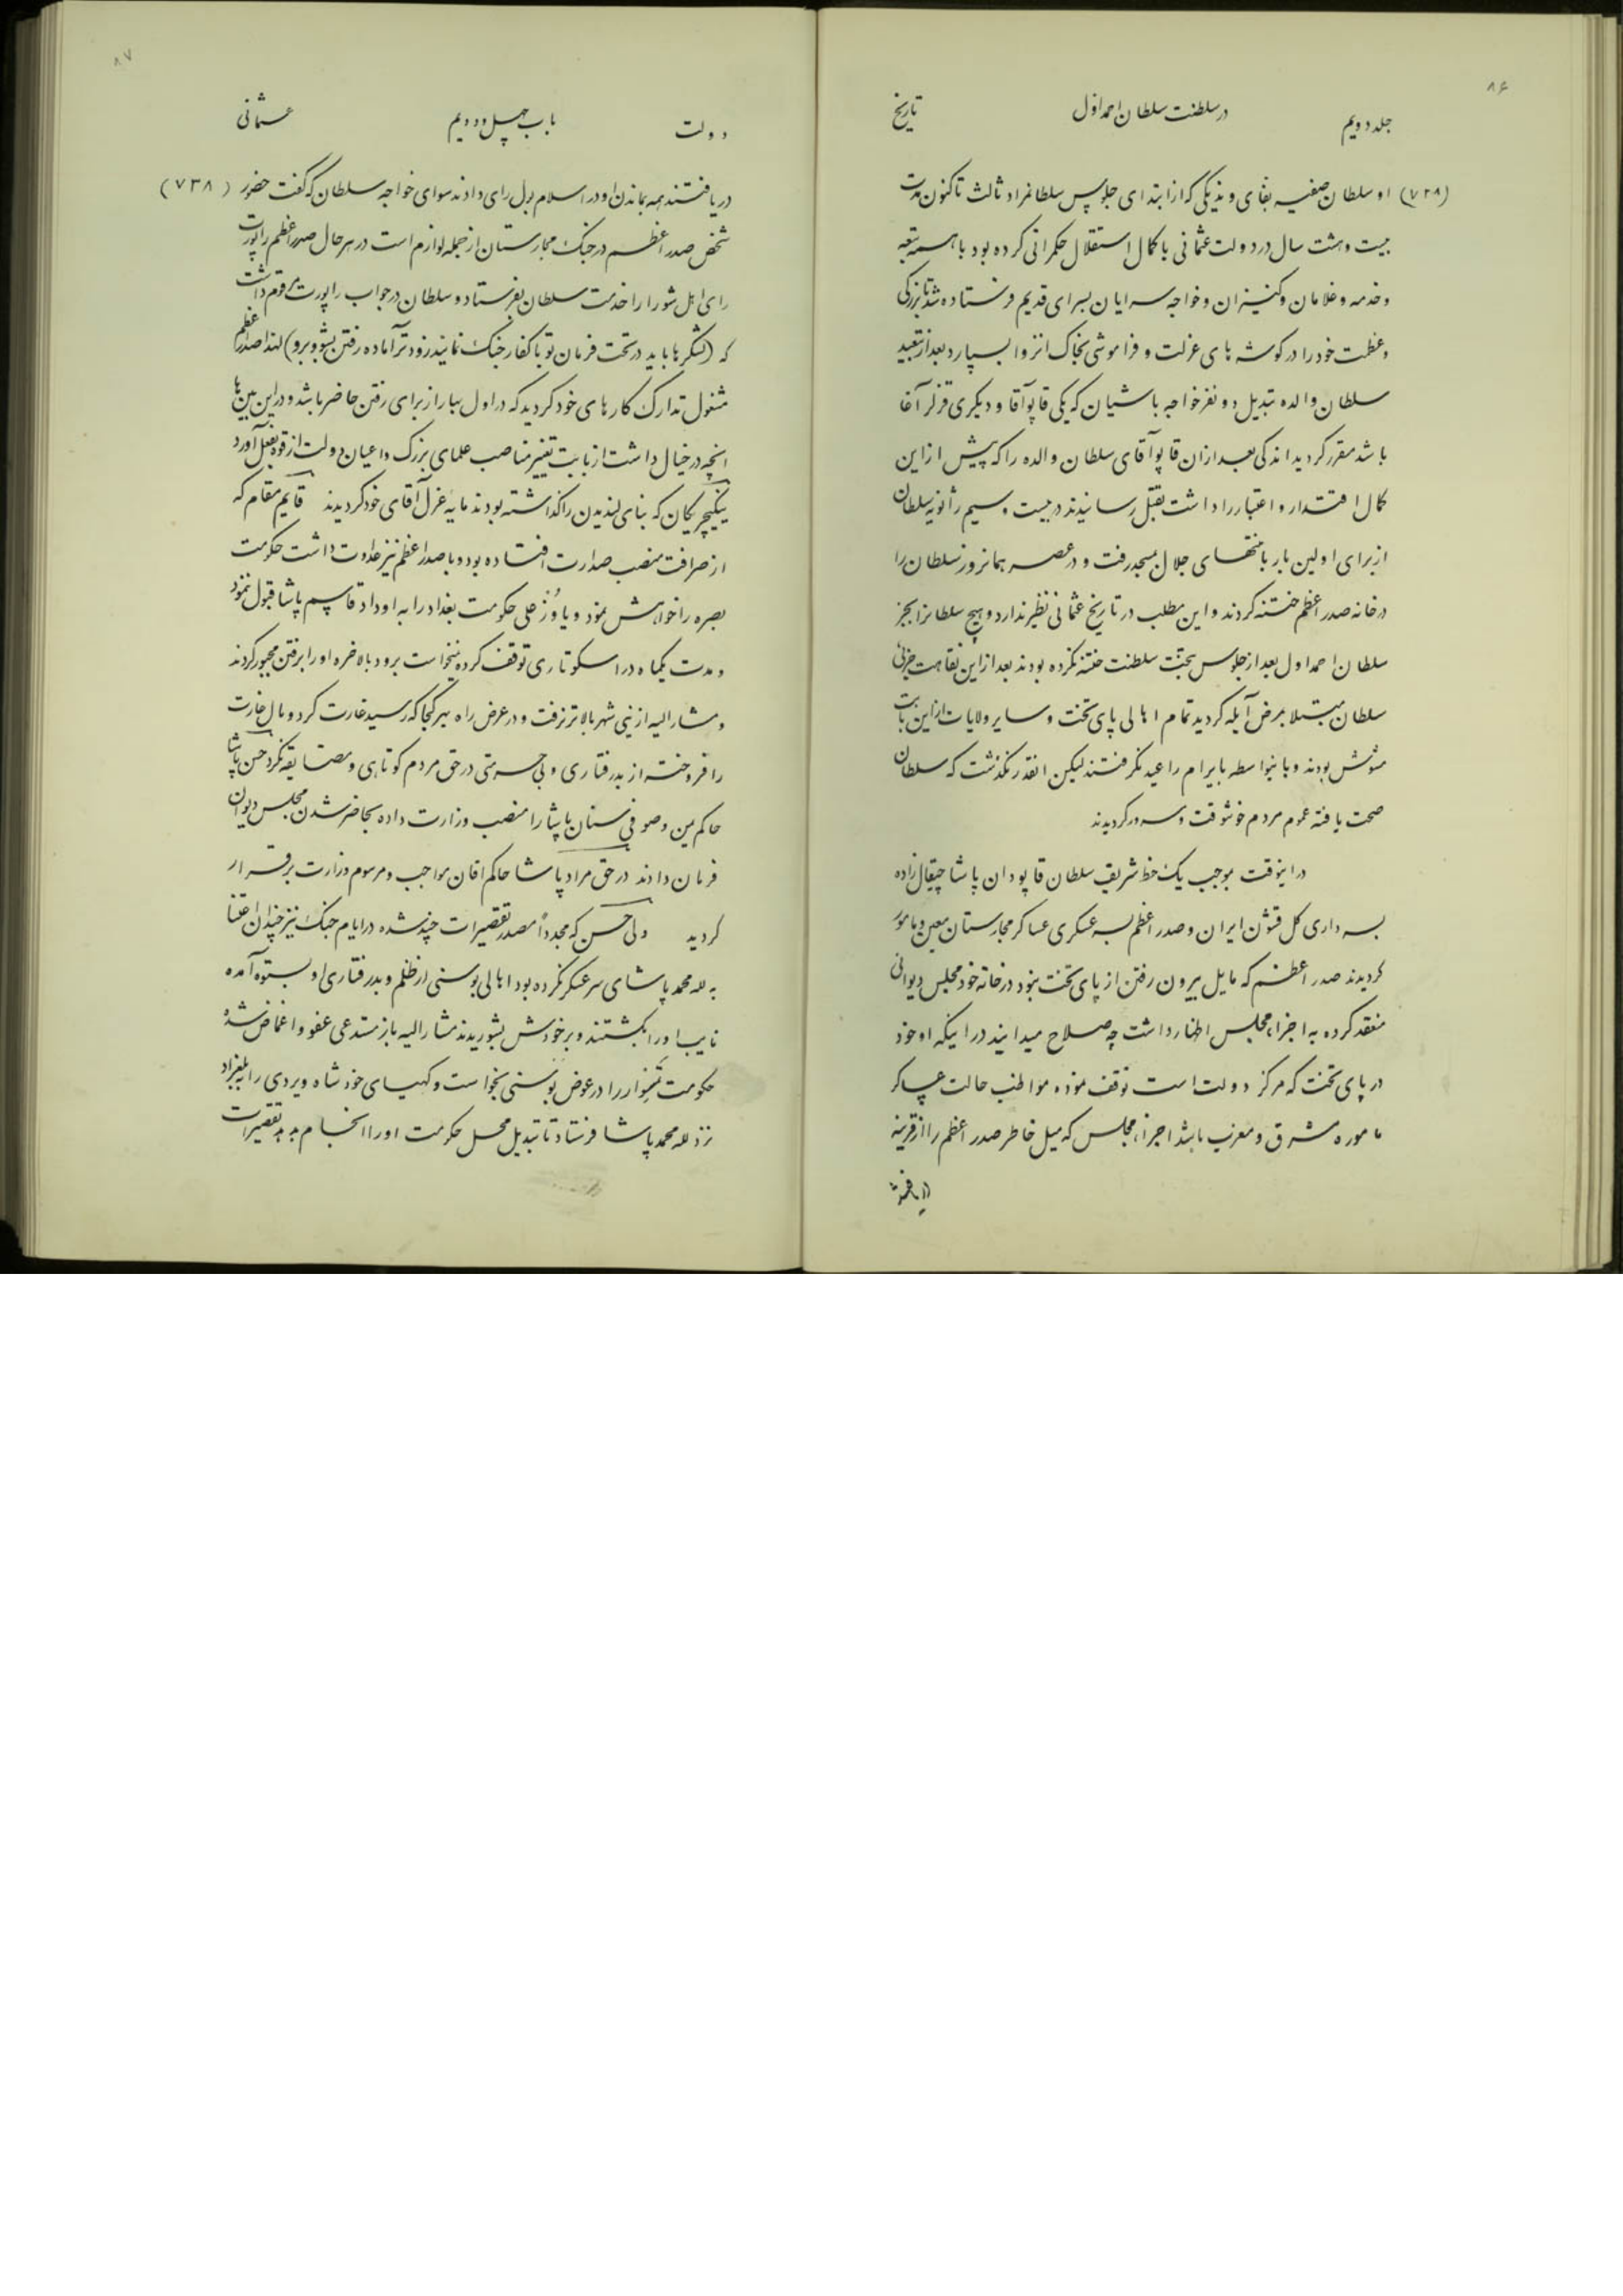 ۸۶
جلد دویم در سلطنت سلطان احمد اول تاریخ
(۷۳۸) او سلطان صفیه بفای ویذیکی که از ابتدای جلوس سلطانمراد ثالث تاکنون مدت
بیست و هشت سال در دولت عثمانی با کمال استقلال حکمرانی کرده بود با همه تبعه
و خدمه و غلامان و کنیزان و خواجه سرایان بسرای قدیم فرستاده شد تا بزرگی
و عظمت خود را در گوشه های عزلت و فراموشی بخاک انزوا بسپارد بعد از تبعید
سلطان والده تبدیل دو نفر خواجه باشیان که یکی قاپوآقا و دیگری قزلر آغا
باشد مقرر گردید اندکی بعد از ان قاپوآقای سلطان والده را که پیش از این
کمال اقتدار و اعتبار را داشت بقتل رسانیدند در بیست و سیم ژانویه سلطان
از برای اولین بار با منتهای جلال بمسجد رفت و در عصر همانروز سلطان را
در خانه صدر اعظم ختنه کردند و این مطلب در تاریخ عثمانی نظیر ندارد و هیچ سلطانرا بجز
سلطان احمد اول بعد از جلوس بتخت سلطنت ختنه نکرده بودند بعد از این نقاهت جزئی
سلطان مبتلا بمرض آبله گردید تمام اهالی پای تخت و سایر ولایات از این بابت
مشوش بودند و باینواسطه بایرام را عید نگرفتند لیکن انقدر نگذشت که سلطان
صحت یافته عموم مردم خوشوقت و مسرور گردیدند
در اینوقت بموجب یک خط شریف سلطان قاپودان پاشا چیقال زاده
بسرداری کل قشون ایران و صدر اعظم بسر عسکری عساکر مجارستان معین و مامور
گردیدند صدر اعظم که مایل بیرون رفتن از پای تخت نبود در خانه خود مجلس دیوانی
منعقد کرده به اجزاء مجلس اظهار داشت چه صلاح میدانید در اینکه او خود
در پای تخت که مرکز دولت است توقف نموده مواظب حالت عساکر
ماموره مشرق و مغرب باشد اجزاء مجلس که میل خاطر صدر اعظم را از قرینه
دریافتند
۸۷
دولت باب چهل و دویم عثمانی
دریافتند همه بماندن او در اسلامبول رای دادند سوای خواجه سلطان که گفت حضور (۷۳۸)
شخص صدر اعظم در جنگ مجارستان از جمله لوازم است در هر حال صدر اعظم راپورت
رای اهل شورا را خدمت سلطان بفرستاد و سلطان در جواب راپورت مرقوم داشت
که (لشکرها باید در تحت فرمان تو با کفار جنگ نمایند زودتر آماده رفتن بشو و برو) لهذا صدر اعظم
مشغول تدارک کارهای خود گردید که در اول بهار از برای رفتن حاضر باشد و در این بین ها
انچه در خیال داشت از بابت تغییر مناصب علمای بزرگ و اعیان دولت از قوه بفعل آورد
ینگیچریکان که بنای لندیدن را گذاشته بودند مایه عزل آقای خود گردیدند قایم مقام که
از صرافت منصب صدارت افتاده بود و با صدر اعظم نیز عداوت داشت حکومت
بصره را خواهش نمود و یاوز علی حکومت بغداد را به او داد قاسم پاشا قبول نمود
و مدت یکماه در اسکوتاری توقف کرده نمیخواست برود بالاخره او را برفتن مجبور کردند
و مشارالیه از ینی شهر بالاتر نرفت و در عرض راه بهر کجا که رسید غارت کرد و مال غارت
را فروخت از بدرفتاری و بی حرمتی در حق مردم کوتاهی و مضایقه نکرد حسن پاشا
حاکم یمن و صوفی سنان پاشا را منصب وزارت داده بحاضر شدن مجلس دیوان
فرمان دادند در حق مراد پاشا حاکم افان مواجب و مرسوم وزارت برقرار
گردید ولی حسن که مجدداً مصدر تقصیرات چند شده در ایام جنگ نیز چندان اعتنا
به لله محمد پاشای سر عسکر نکرده بود اهالی بوسنی از ظلم و بدرفتاری او بستوه آمده
نایب او را بکشتند و بر خودش بشوریدند مشارالیه باز مستدعی عفو و اغماض شده
حکومت تمیوار را در عوض بوسنی بخواست و کهیای خود شاه ویردی را ببلغراد
نزد لله محمد پاشا فرستاد تا تبدیل محل حکومت او را انجام بدهد تقصیرات